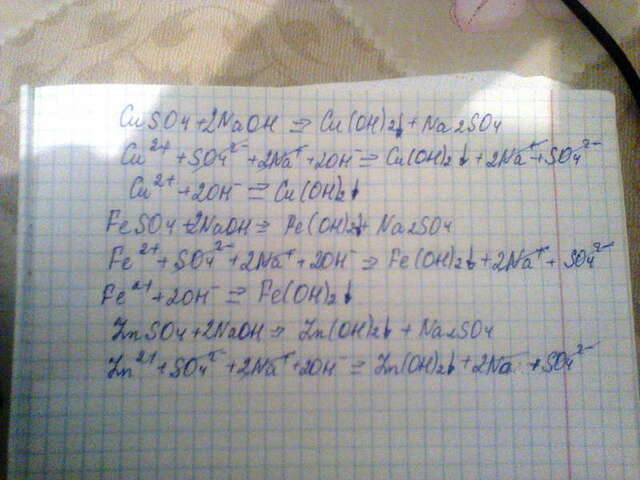 CuSO4+2NaOH = Cu(OH)2↓+Na2SO4
Cu²⁺+SO4²⁻+2Na⁺+2OH⁻ = Cu(OH)2↓+2Na⁺+SO4²⁻
Cu²⁺+2OH⁻ = Cu(OH)2↓
FeSO4+2NaOH = Fe(OH)2↓+ Na2SO4
Fe²⁺+SO4²⁻+2Na⁺+2OH⁻ = Fe(OH)2↓+2Na⁺+ SO4²⁻
Fe²⁺+2OH⁻ = Fe(OH)2↓
ZnSO4+2NaOH = Zn(OH)2↓+Na2SO4
Zn²⁺+SO4²⁻+2Na⁺+2OH⁻ = Zn(OH)2↓+2Na⁻+SO4²⁻